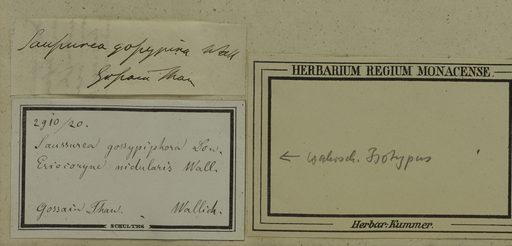 Saussurea gossypina Wall
Gossain Than
2910/20.
Saussurea gossypiphora Don.
Eriocoryne nidularis Wall.
Gossain Than. Wallich.
SCHULTES
HERBARIUM REGIUM MONACENSE.
← wahrsch. Isotypus
Herbar. Kummer.